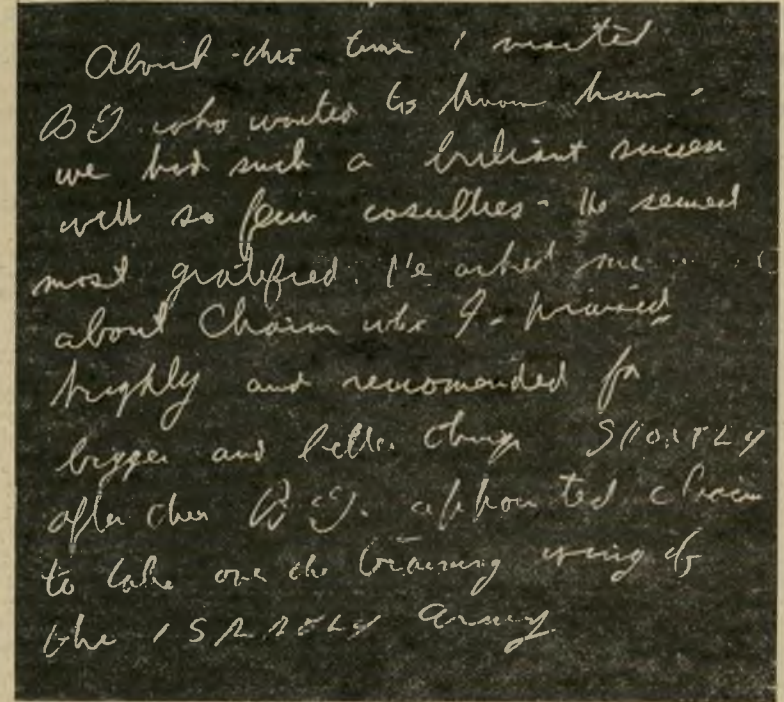 About this time I visited
B G. who wanted to know how
we had such a briliant success
with so few casulties - He seemed
most gratified. He asked me
about Chaim who I praised
highly and reccomended for
bigger and better things SHORTLY
after this B G. appointed Chaim
to take over the training wing of
the ISRAELY Army.